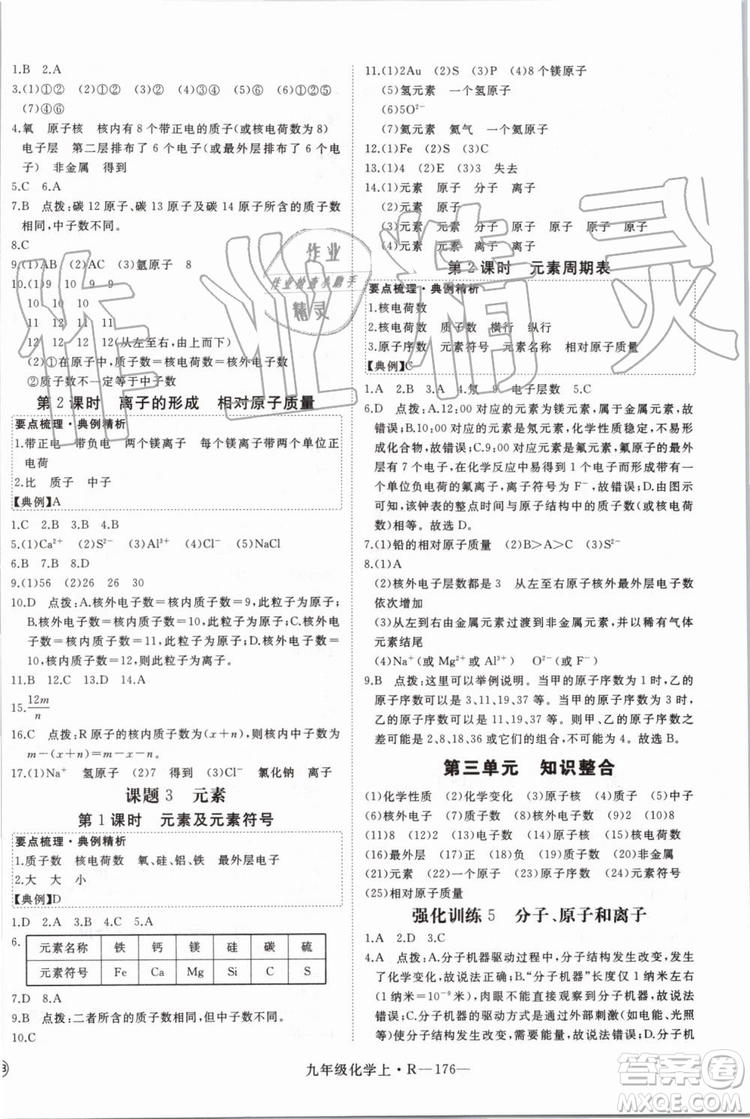 1.B 2.A
3.(1)①② (2)①② (3)①② (6)④⑥
(7)④⑥
4.氧 原子核 核内有 8 个带正电的质子数(或核电荷数为 8)
电子层 第二层排布了 6 个电子(或最外层排布了 6 个电
子) 非金属 得到
5.C 6.A
7.B 点拨:碳 12 原子、碳 13 原子、碳 14 原子所含的质子数
相同,中子数不同。
8.C
9.(1)AB (2)AC (3)氩原子 8
10.(1)9 10 9 9
10 10 10
11 12 11 11
12 12 12(从左至右)
(2)①核电荷数=核内质子数=核外电子数
②质子数不一定等于中子数
第 2 课时 离子的形成 相对原子质量
要点梳理·典例精析
1.带正电 带负电 两个镁离子 每个镁离子带两个单位正
电荷
2.比 质子 中子
【典例】A
1.C 2.B 3.B 4.C
5.(1)Ca²⁺ (2)S²⁻ (3)Al³⁺ (4)Cl⁻ (5)NaCl
6.B 7.B 8.D
9.(1)56 (2)26 (3)30
10.D 点拨:A.核外电子数=核内质子数=9,此粒子为原子;
B.核外电子数=核内质子数=11,此粒子为原子;C.核外
电子数=核内质子数=17,此粒子为原子;D.核外电子数≠
核内质子数,此粒子为离子。
11.B 12.C 13.D 14.A
15. 12m/n
16.C 点拨:R 原子的核内质子数为(x+n),则核内中子数为
m-(x+n)=m-x-n。
17.(1)Na⁺ 氢原子 (2)7 得到 (3)Cl⁻ 氯化钠 离子
课题 3 元素
第 1 课时 元素及元素符号
要点梳理·典例精析
1.质子数 核电荷数 氧、硅、铝、铁 最外层电子
2.大 大 小
【典例】D
1.D 2.A 3.D 4.B 5.A
6. 元素名称 铁 钙 镁 硅 碳 硫
元素符号 Fe Ca Mg Si C S
7.D 8.A
9.B 点拨:二者所含的质子数不同,属于不同种元素。
10.C
11.(1)2Au (2)S (3)P (4)6 个镁原子
(5)氢元素 一个氢原子
(6)5O²⁻
(7)氦元素 氦气 一个氦原子
12.(1)Fe (2)S (3)C
13.(1)4 (2)E (3)3 失去
14.(1)元素 原子 分子 离子
(2)元素 原子
(3)元素 分子 原子 原子 原子 原子
(4)元素 元素 离子 离子
第 2 课时 元素周期表
要点梳理·典例精析
1.核电荷数
2.核电荷数 质子数 横行 纵行
3.原子序数 元素符号 元素名称 相对原子质量
【典例】C
1.A 2.D 3.A 4.氖 9 电子层数 5.C
6.D 点拨:A.12:00 对应的元素为镁元素,为金属元素,故
错误;B.10:00 对应的元素是氖元素,化学性质稳定,不易形
成化合物,故错误;C.9:00 对应的元素为氟元素,氟原子最外
层有 7 个电子,在化学反应中易得到一个电子,形成带一
个单位负电荷的氟离子,离子符号为 F⁻,故错误;D.由图示
可知,该钟表的整点时间与原子结构中的质子数(或核电荷
数)相等。故选 D。
7.(1)铅的相对原子质量 (2)B>A>C
8.(1)A
(2)核外电子层数都是 3 从左至右原子核外最外层电子数
依次增加
(3)从左至右由金属元素过渡到非金属元素,并以稀有气体
元素结尾
(4)Na⁺(或 Mg²⁺ Al³⁺) O²⁻(或 F⁻)
9.B 点拨:这里可以举例说明。当甲的原子序数是 1 时,乙的
可能是 3、11、19、37 等。当甲的原子序数是 2 时,乙的原子
序数可能是 3、11、19、37 等。所以甲、乙的原子序数之
差可能是 2、8、18、36 或它们的组合,不可能是 6。
第三单元 知识整合
(1)化学性质 (2)化学变化 (3)原子核 (4)质子 (5)中子
(6)核外电子 (7)质子数 (8)核外电子数 (9)2 (10)8
(11)8 (12)2 (13)失 (14)得 (15)最外层电子
(16)电 (17)正 (18)负 (19)Na⁺ (20)Cl⁻
(21)元素 (22)一个 (23)元素 (24)元素符号
(25)相对原子质量
强化训练 5 分子、原子和离子
1.A 2.D 3.C
4.A 点拨:A.分子机器驱动过程中,分子结构发生了改变,一
定发生了化学变化,故说法错误;B."分子机器"尺寸小
(1纳米=10⁻⁹米),用肉眼不能直接观察到分子机器,故说法
正确;C.分子机器的驱动方式是通过外部刺激(如
使分子结构发生改变,故说法正确;D.
九年级化学上·R—176—
作业精灵
作业
作业检查小助手
精灵
答案圈